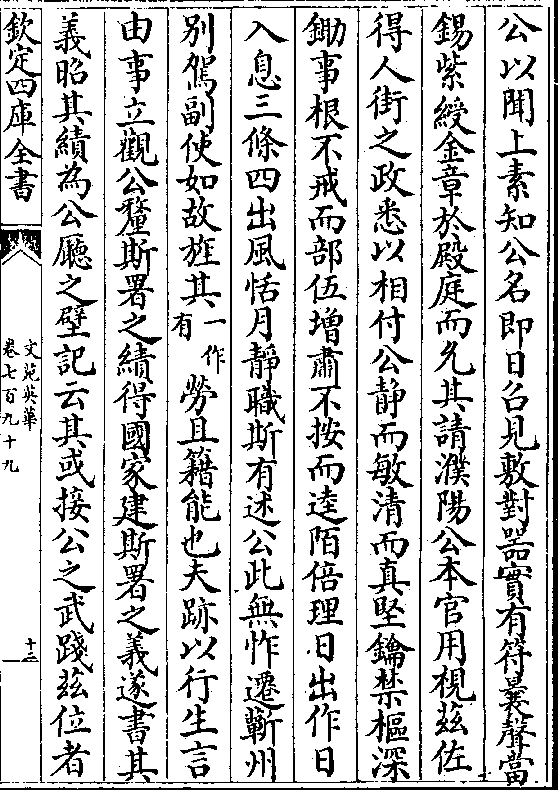 公以聞上素知公名即日召見敷對器實有符曩聲當
錫紫綬金章於殿庭而允其請濮陽公本官用梘茲佐
得人街之政悉以相付公静而敏清而真堅鑰禁樞深
鋤事根不戒而部伍增肅不按而逵陌倍理日出作日
入息三條四出風恬月靜職斯有述公此無怍遷蘄州
别駕副使如故旌其一作有勞且籍能也夫跡以行生言
由事立觀公釐斯署之績得國家建斯署之義遂書其
義昭其績為公廳之壁記云其或接公之武踐兹位者
欽定四庫全書
文苑英華
卷七百九十九
十三